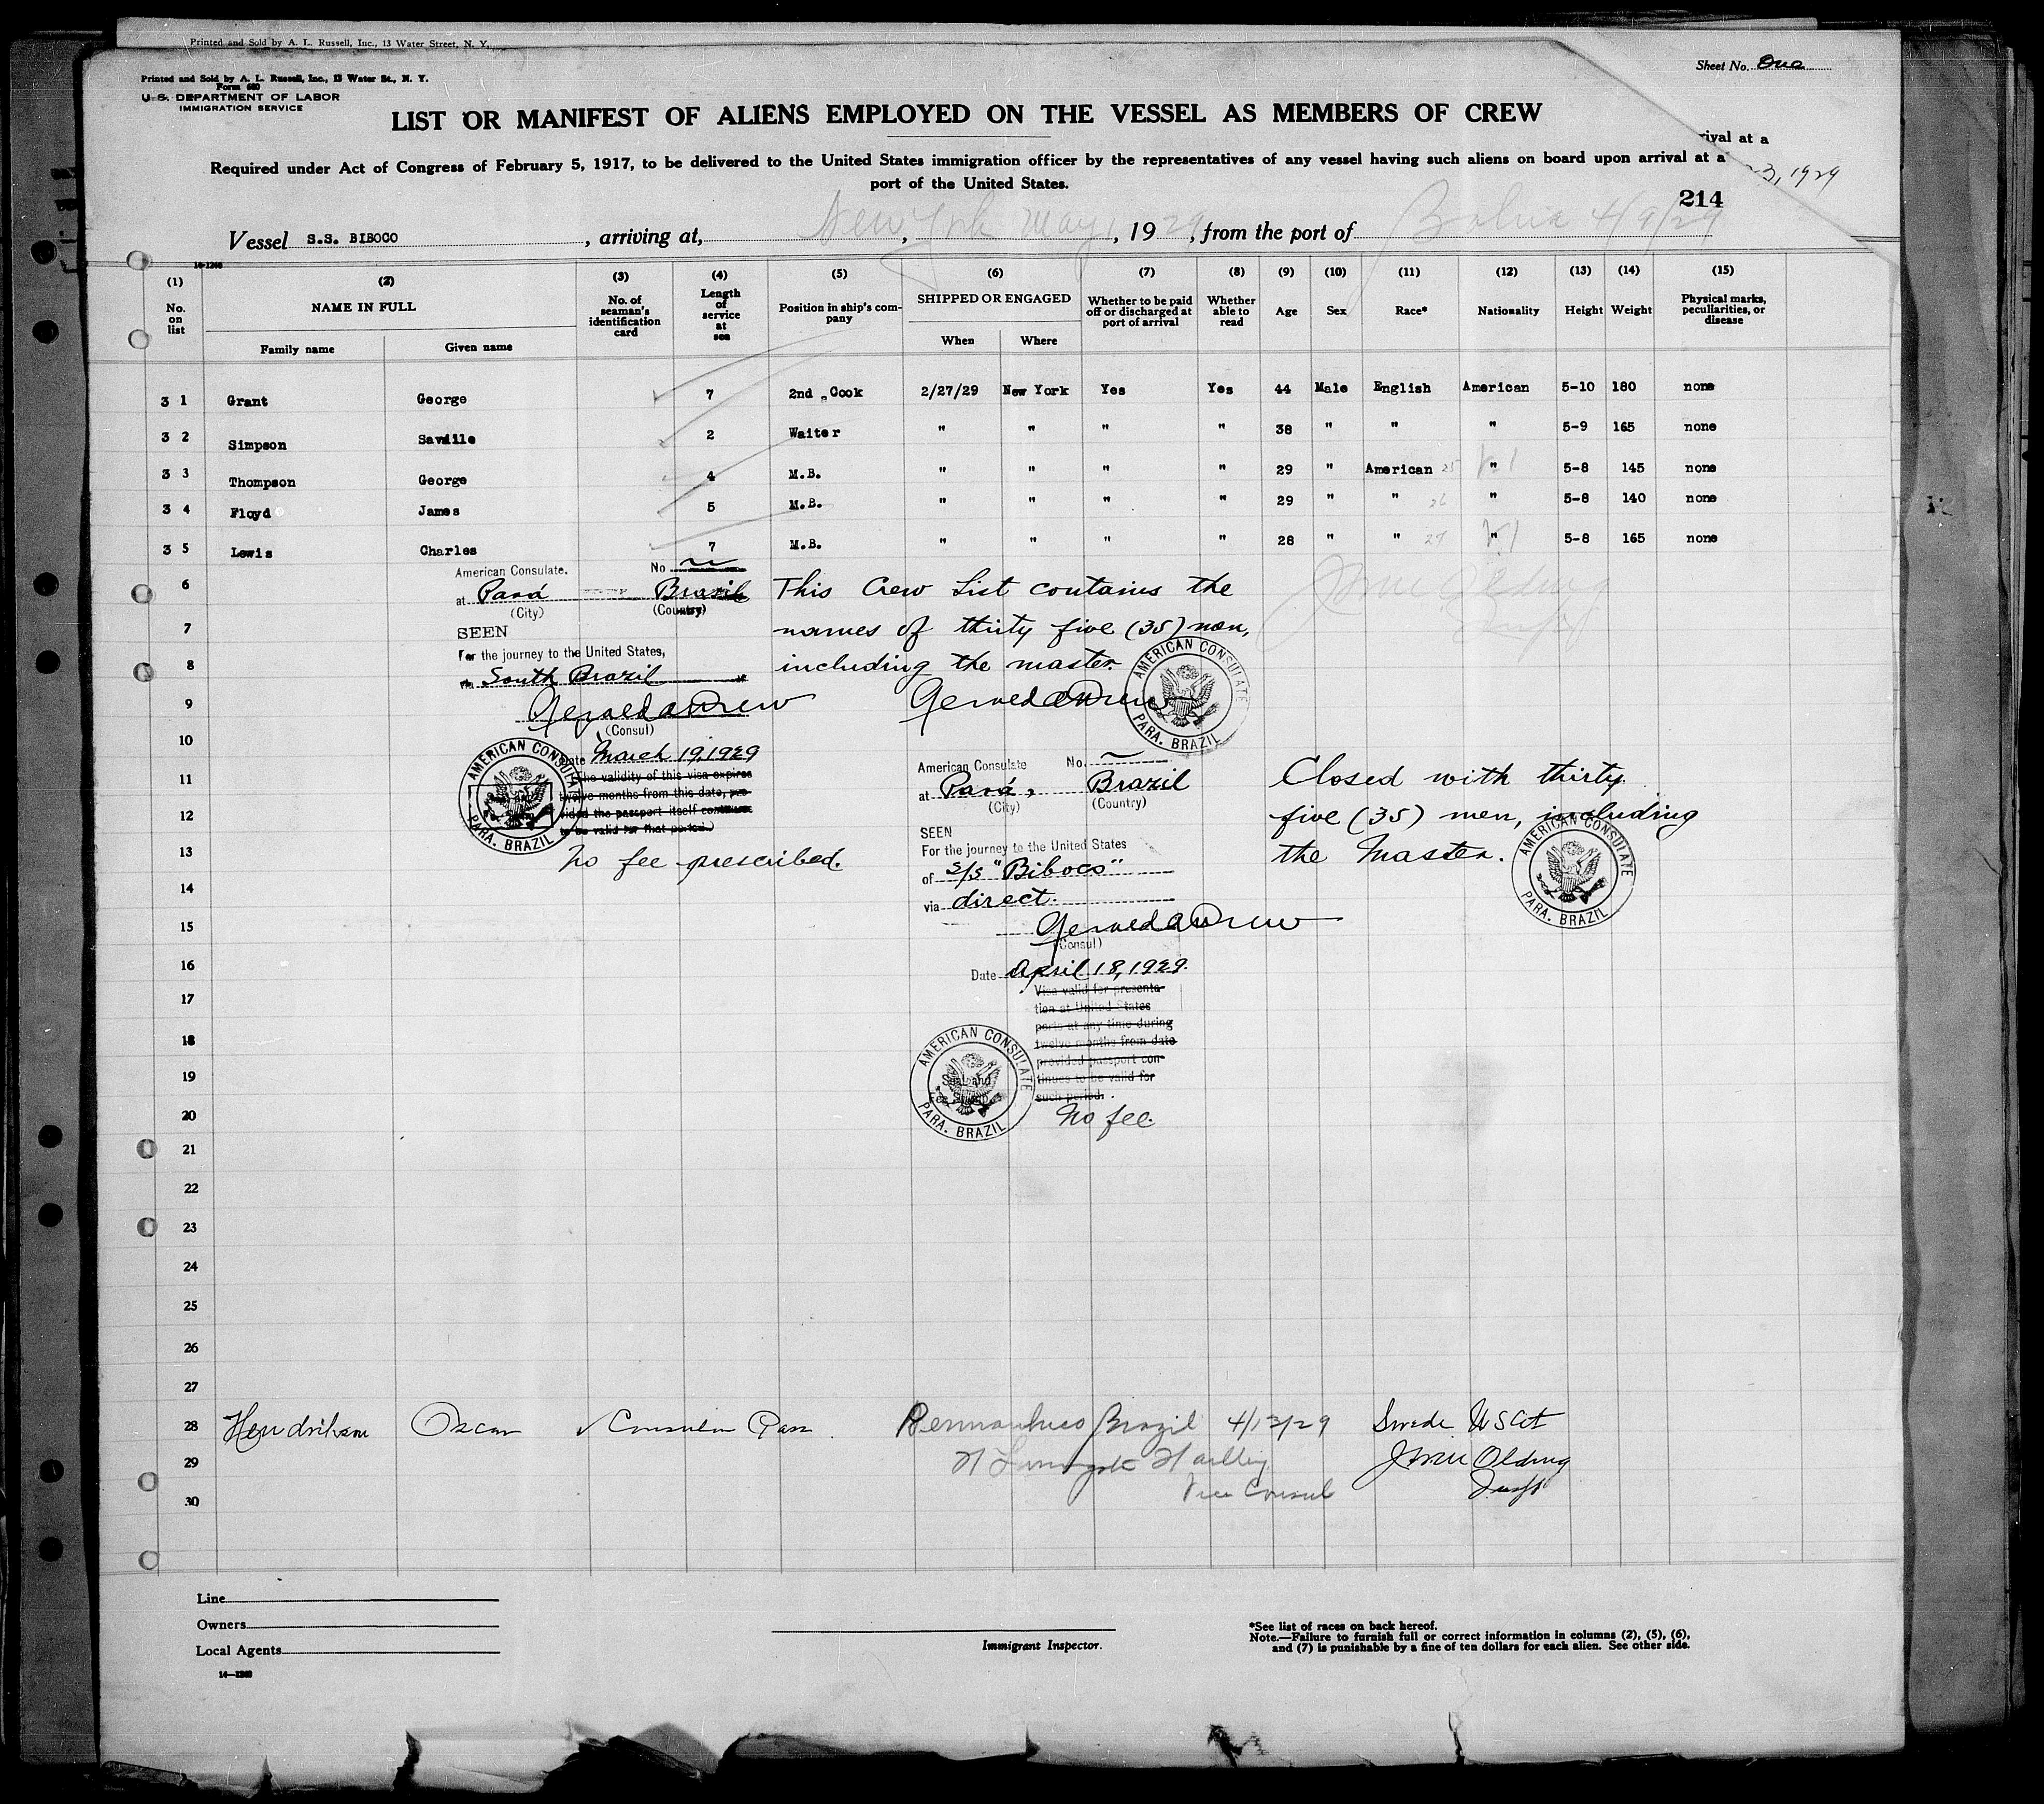 Printed and Sold by A. L. Russell, Inc., 13 Water Street, N. Y.
Sheet No. One
Printed and Sold by A. L. Russell, Inc., 13 Water St., N. Y.
Form 680
U. S. DEPARTMENT OF LABOR
IMMIGRATION SERVICE
LIST OR MANIFEST OF ALIENS EMPLOYED ON THE VESSEL AS MEMBERS OF CREW
rival at a
Required under Act of Congress of February 5, 1917, to be delivered to the United States immigration officer by the representatives of any vessel having such aliens on board upon arrival at a
port of the United States.
3, 1929
214
Vessel S.S. BIBOCO , arriving at, New York May 1, 1929, from the port of Bahia 4/9/29
14-1240
(1) (2) (3) (4) (5) (6) (7) (8) (9) (10) (11) (12) (13) (14) (15)
No. on list NAME IN FULL No. of seaman's identification card Length of service at sea Position in ship's company SHIPPED OR ENGAGED Whether to be paid off or discharged at port of arrival Whether able to read Age Sex Race* Nationality Height Weight Physical marks, peculiarities, or disease
Family name Given name When Where
3 1 Grant George 7 2nd Cook 2/27/29 New York Yes Yes 44 Male English American 5-10 180 none
3 2 Simpson Saville 2 Waiter " " " " 38 " " " 5-9 165 none
3 3 Thompson George 4 M.B. " " " " 29 " American 25 " 5-8 145 none
3 4 Floyd James 5 M.B. " " " " 29 " " 26 " 5-8 140 none
3 5 Lewis Charles 7 M.B. " " " " 28 " " 27 " 5-8 165 none
American Consulate. No
at Pará Brazil
(City) (Country)
SEEN
For the journey to the United States,
via South Brazil
Gerald A Drew
(Consul)
Date March 19, 1929
The validity of this visa expires
twelve months from this date, pro-
vided the passport itself continues
to be valid for that period.)
AMERICAN CONSULATE
PARA. BRAZIL
No fee prescribed.
This Crew List contains the
names of thirty five (35) men,
including the master.
Gerald A Drew
AMERICAN CONSULATE
PARA. BRAZIL
American Consulate No.
at Pará, Brazil
(City) (Country)
SEEN
For the journey to the United States
of S/S "Biboco"
via direct.
Gerald A Drew
(Consul)
Date April 18, 1929.
Visa valid for presenta-
tion at United States
ports at any time during
twelve months from date
provided passport con-
tinues to be valid for
such period.
AMERICAN CONSULATE
PARA. BRAZIL
No fee.
Closed with thirty
five (35) men, including
the Master.
AMERICAN CONSULATE
PARA. BRAZIL
6
7
8
9
10
11
12
13
14
15
16
17
18
19
20
21
22
23
24
25
26
27
28 Hendriksen Oscar Consular Pass Pernambuco Brazil 4/13/29 Swede US Cit
29 Olding
30 Vice Consul Insp
Line
Owners
Local Agents
14-1240
Immigrant Inspector.
*See list of races on back hereof.
Note.—Failure to furnish full or correct information in columns (2), (5), (6),
and (7) is punishable by a fine of ten dollars for each alien. See other side.